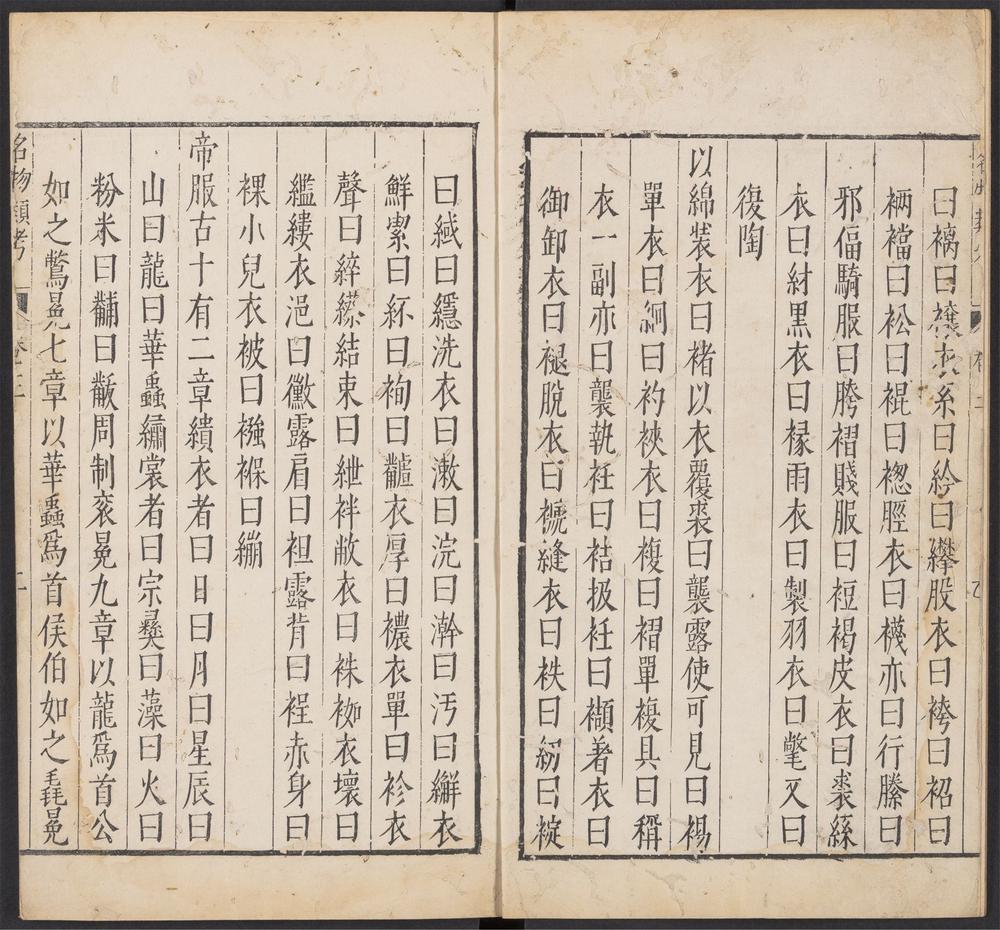 曰褵曰襐衣系曰紟曰纝股衣曰袴曰袑曰
裲襠曰衳曰裩曰䙅脛衣曰襪亦曰行縢曰
邪偪騎服曰胯褶賤服曰裋褐皮衣曰裘絲
衣曰紨黑衣曰褖雨衣曰製羽衣曰氅又曰
復陶
以綿裝衣曰褚以衣覆裘曰襲露使可見曰裼
單衣曰絅曰袀裌衣曰複曰褶單複具曰稱
衣一副亦曰襲執衽曰袺扱衽曰襭著衣曰
御卸衣曰褪脫衣曰褫縫衣曰袟曰紉曰䘺
曰緎曰繧洗衣曰漱曰浣曰澣曰汚曰衣
鮮潔曰紑曰袧曰衣厚曰襛衣單曰袗衣
聲曰綷縩結束曰紲袢敝衣曰袾袽衣壞曰
繿縷衣浥曰黴露肩曰袒露背曰裎赤身曰
裸小兒衣被曰襁褓曰繃
帝服古十有二章繢衣者曰日曰月曰星辰曰
山曰龍曰華蟲繡裳者曰宗彝曰藻曰火曰
粉米曰黼曰黻周制衮冕九章以龍爲首公
如之鷩冕七章以華蟲爲首侯伯如之毳冕
名物類考 卷二 二